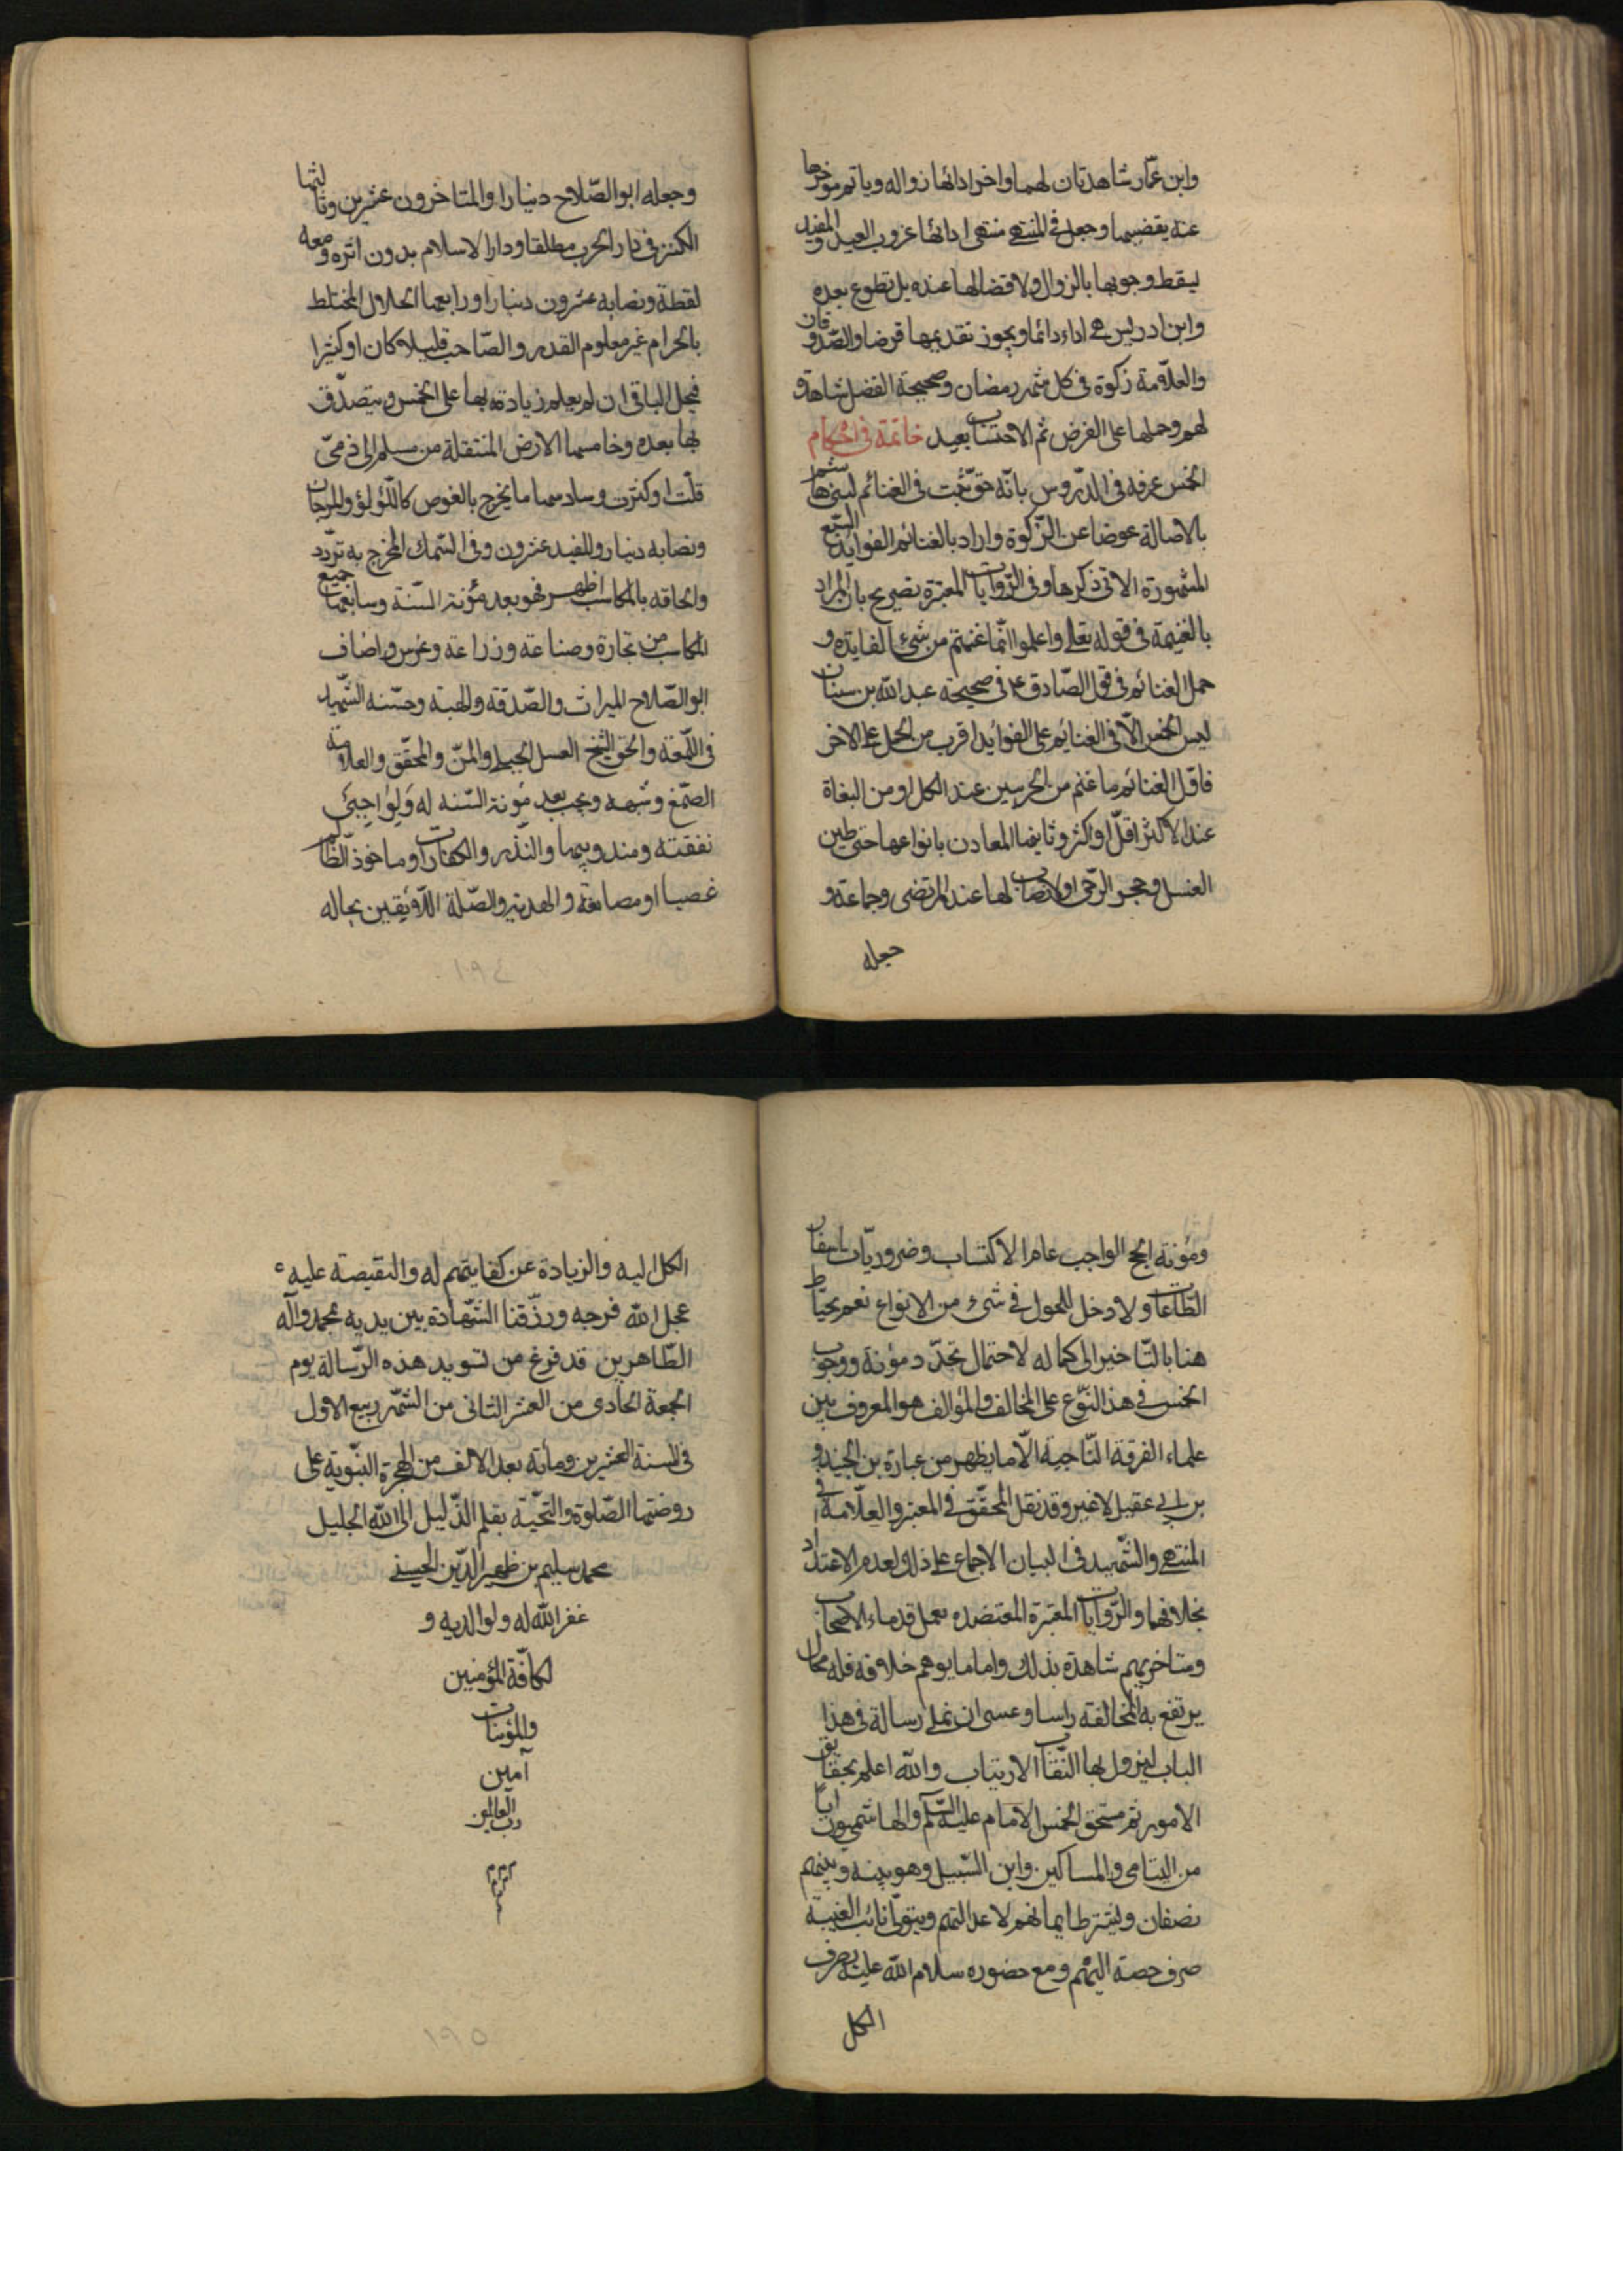 وابن عمّار شاهدتان لهما واخر ادائها زواله وياثم مؤخرها
عنه يقضيها وجعل فى المنتهى منتهى ادائها غروب العيد والمفيد
يسقط وجوبها بالزوال ولا قضا لها عنده بل تطوع بعده
وابن ادريس هى اداء دائما ويجوز تقديمها قرضا والصّدوقان
والعلّامة زكوة فى كل شهر رمضان وصحيحة الفضلا شاهدة
لهم وحملها على القرض ثم الاحتساب بعيد خاتمة فى احكام
الخمس عرفه فى الدّروس بانّه حقّ يثبت فى الغنائم لبنى هاشم
بالاصالة عوضا عن الزّكوة واراد بالغنائم الفوايد السّبع
المشهورة الاتى ذكرها وفى الرّوايات المعتبرة تصريح بان المراد
بالغنيمة فى قوله تعالى واعلموا انّما غنمتم من شىء الفايدة و
حمل الغنائم فى قول الصّادق ع فى صحيحة عبد الله بن سنان
ليس الخمس الّا فى الغنايم على الفوايد اقرب من الحمل على الاخر
فاوّل الغنائم ما غنم من الحربيين عند الكل او من البغاة
عند الاكثر اقلّ او اكثر وثانيها المعادن بانواعها حتى طين
الغسل وحجر الرّحى ولا نصاب لها عند المرتضى وجماعة و
جعله
وجعله ابو الصّلاح دينارا والمتاخرون عشرين وثالثها
الكنز فى دار الحرب مطلقا ودار الاسلام بدون اثره ومعه
لقطة ونصابه عشرون دينارا ورابعها الحلال المختلط
بالحرام غير معلوم القدر والصّاحب قليلا كان او كثيرا
فيحل الباقى ان لم يعلم زيادته بها على الخمس ويتصدّق
بها بعده وخامسها الارض المنتقلة من مسلم الى ذمىّ
قلّت او كثرت وسادسها ما يخرج بالغوص كاللّؤلؤ والمرجان
ونصابه دينار وللمفيد عشرون وفى السّمك المخرج به تردّد
والحاقه بالمكاسب اظهر فهو بعد مؤنة السّنة وسابعها جميع
المكاسب من تجارة وصناعة وزراعة وغرس واضاف
ابو الصّلاح الميراث والصّدقة والهبة وحسّنه الشّهيد
فى اللّمعة والحق الشّيخ العسل الجبلى والمنّ والمحقّق والعلامة
الصّمغ وشبهه ويجب بعد مؤنة السّنه له ولواجبى
نفقته ومندوبيها والنّذر والكفارات وما خوذ الظّالم
غصبا او مصانعة والهديّة والصّلة اللّايقين بحاله
١٩٤
ومؤنة الحج الواجب عام الاكتساب وضروريّات اسفار
الطّاعات ولا دخل للحول فى شىء من الانواع نعم يحتاط
هنا بالتّاخير الى كماله لاحتمال تجدّد مؤنة ووجوب
الخمس فى هذا النّوع على المخالف والمؤالف هو المعروف بين
علماء الفرقة النّاجية الّا ما يظهر من عبارة بن الجنيد و
بن ابى عقيل لا غير وقد نقل المحقّق فى المعتبر والعلّامة فى
المنتهى والشّهيد فى البيان الاجماع على ذلك ولعدم الاعتداد
بخلافهما والرّوايات المعتبرة المعتضده بعمل قدماء الاصحاب
ومتاخريهم شاهدة بذلك واما ما يوهم خلافه فله محمل
يرتفع به المخالفة راسا وعسى ان نملى رسالة فى هذا
الباب ليزول بها النّقاب الارتياب والله اعلم بحقايق
الامور ثم مستحق الخمس الامام عليه السّلم والهاشميون ابا
من اليتامى والمساكين وابن السّبيل وهو بينه وبينهم
نصفان ويشترط ايمانهم لا عدالتهم ويتولّى نائب الغيبة
صرف حصته اليهم ومع حضوره سلام الله عليه يصرف
الكل
الكل اليه والزيادة عن كفايتهم له والنقيصة عليه
عجل الله فرجه ورزّقنا الشّهادة بين يديه بمحمد وآله
الطّاهرين قد فرغ من تسويد هذه الرّسالة يوم
الجمعة الحادى من العشر الثانى من الشّهر ربيع الاول
فى السنة العشرين ومأته بعد الالف من الهجرة النبّوية على
روضتها الصّلوة والتحّية بقلم الذّليل الى الله الجليل
محمد سليم بن ظهير الدّين الحسينى
غفر الله له ولوالديه و
لكافّة المؤمنين
والمؤمنات
آمين
رب العالمين
١٩٥